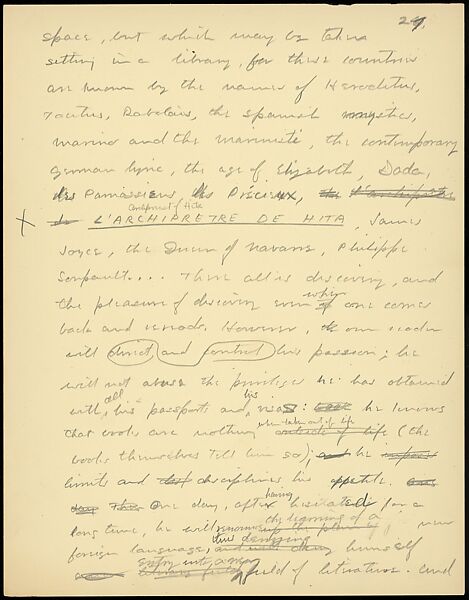 29.
space, but which may be taken
sitting in a library, for these countries
are known by the names of Herodotus,
Tacitus, Rabelais, the Spanish mystics,
Marino and the marinisti, the contemporary
German lyric, the age of Elizabeth, Dada,
des Parnassiens, les Précieux, the l'archiprêtre
Archpriest of Hita
X de L'ARCHIPRETRE DE HITA, James
Joyce, the Queen of Navarre, Philippe
Soupault.... There all is discovery, and
the pleasure of discovery even if one comes
when
back and rereads. However, our reader
will direct and control his passion; he
will not abuse the privileges he has obtained
all his
with his passports and visas: he knows
when taken out of life
that books are nothing outside of life (the
books themselves tell him so); and he
limits and disciplines his appetite.
having
One day, after hesitated for a
the learning of a
long time, he will renounce new
thus denying
foreign language, and himself
entry into a new
field of literature. And